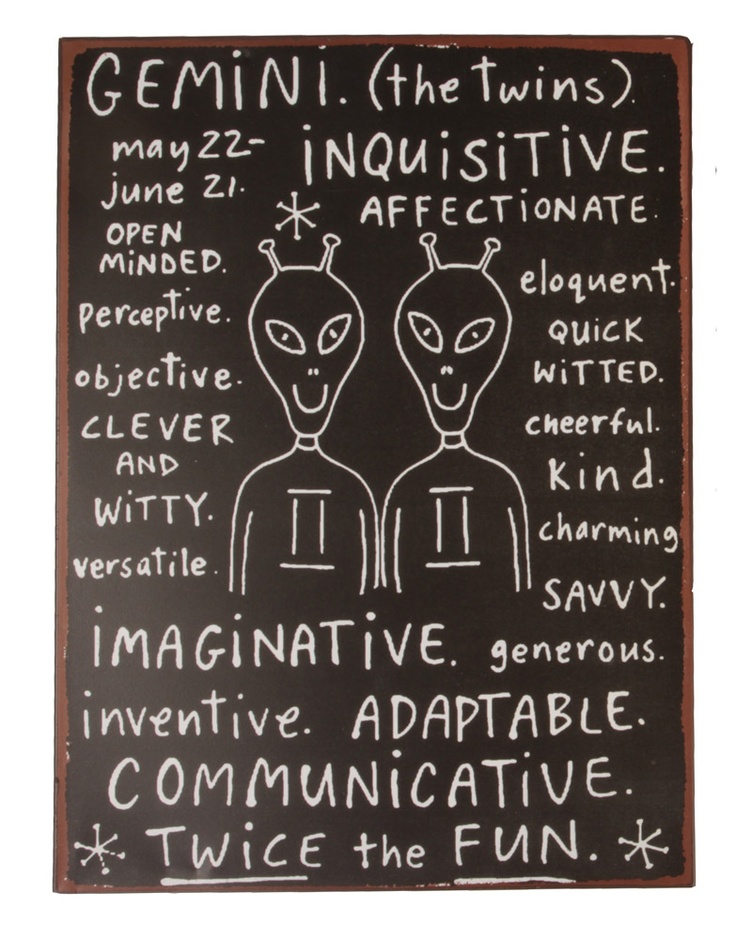 GEMiNi. (the twins).
may 22-
june 21.
iNQUiSiTiVE.
AFFECTiONATE.
OPEN
MiNDED.
perceptive.
objective.
CLEVER
AND
WiTTY.
versatile.
eloquent.
QUiCK
WiTTED.
cheerful.
kind.
charming
SAVVY.
iMAGiNATiVE. generous.
inventive. ADAPTABLE.
COMMUNiCATiVE.
TWiCE the FUN.